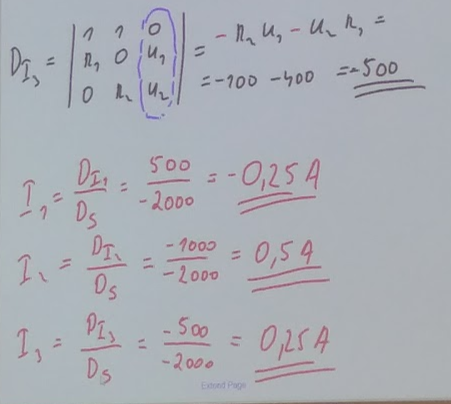 D_I₃ = | 1 1 0 | = - R₂ U₁ - U₂ R₁ =
| R₁ 0 U₁ |
| 0 R₂ U₂ | = -100 -400 = -500
I₁ = D_I₁ / D_S = 500 / -2000 = -0,25 A
I₂ = D_I₂ / D_S = -1000 / -2000 = 0,5 A
I₃ = D_I₃ / D_S = -500 / -2000 = 0,25 A
Extend Page